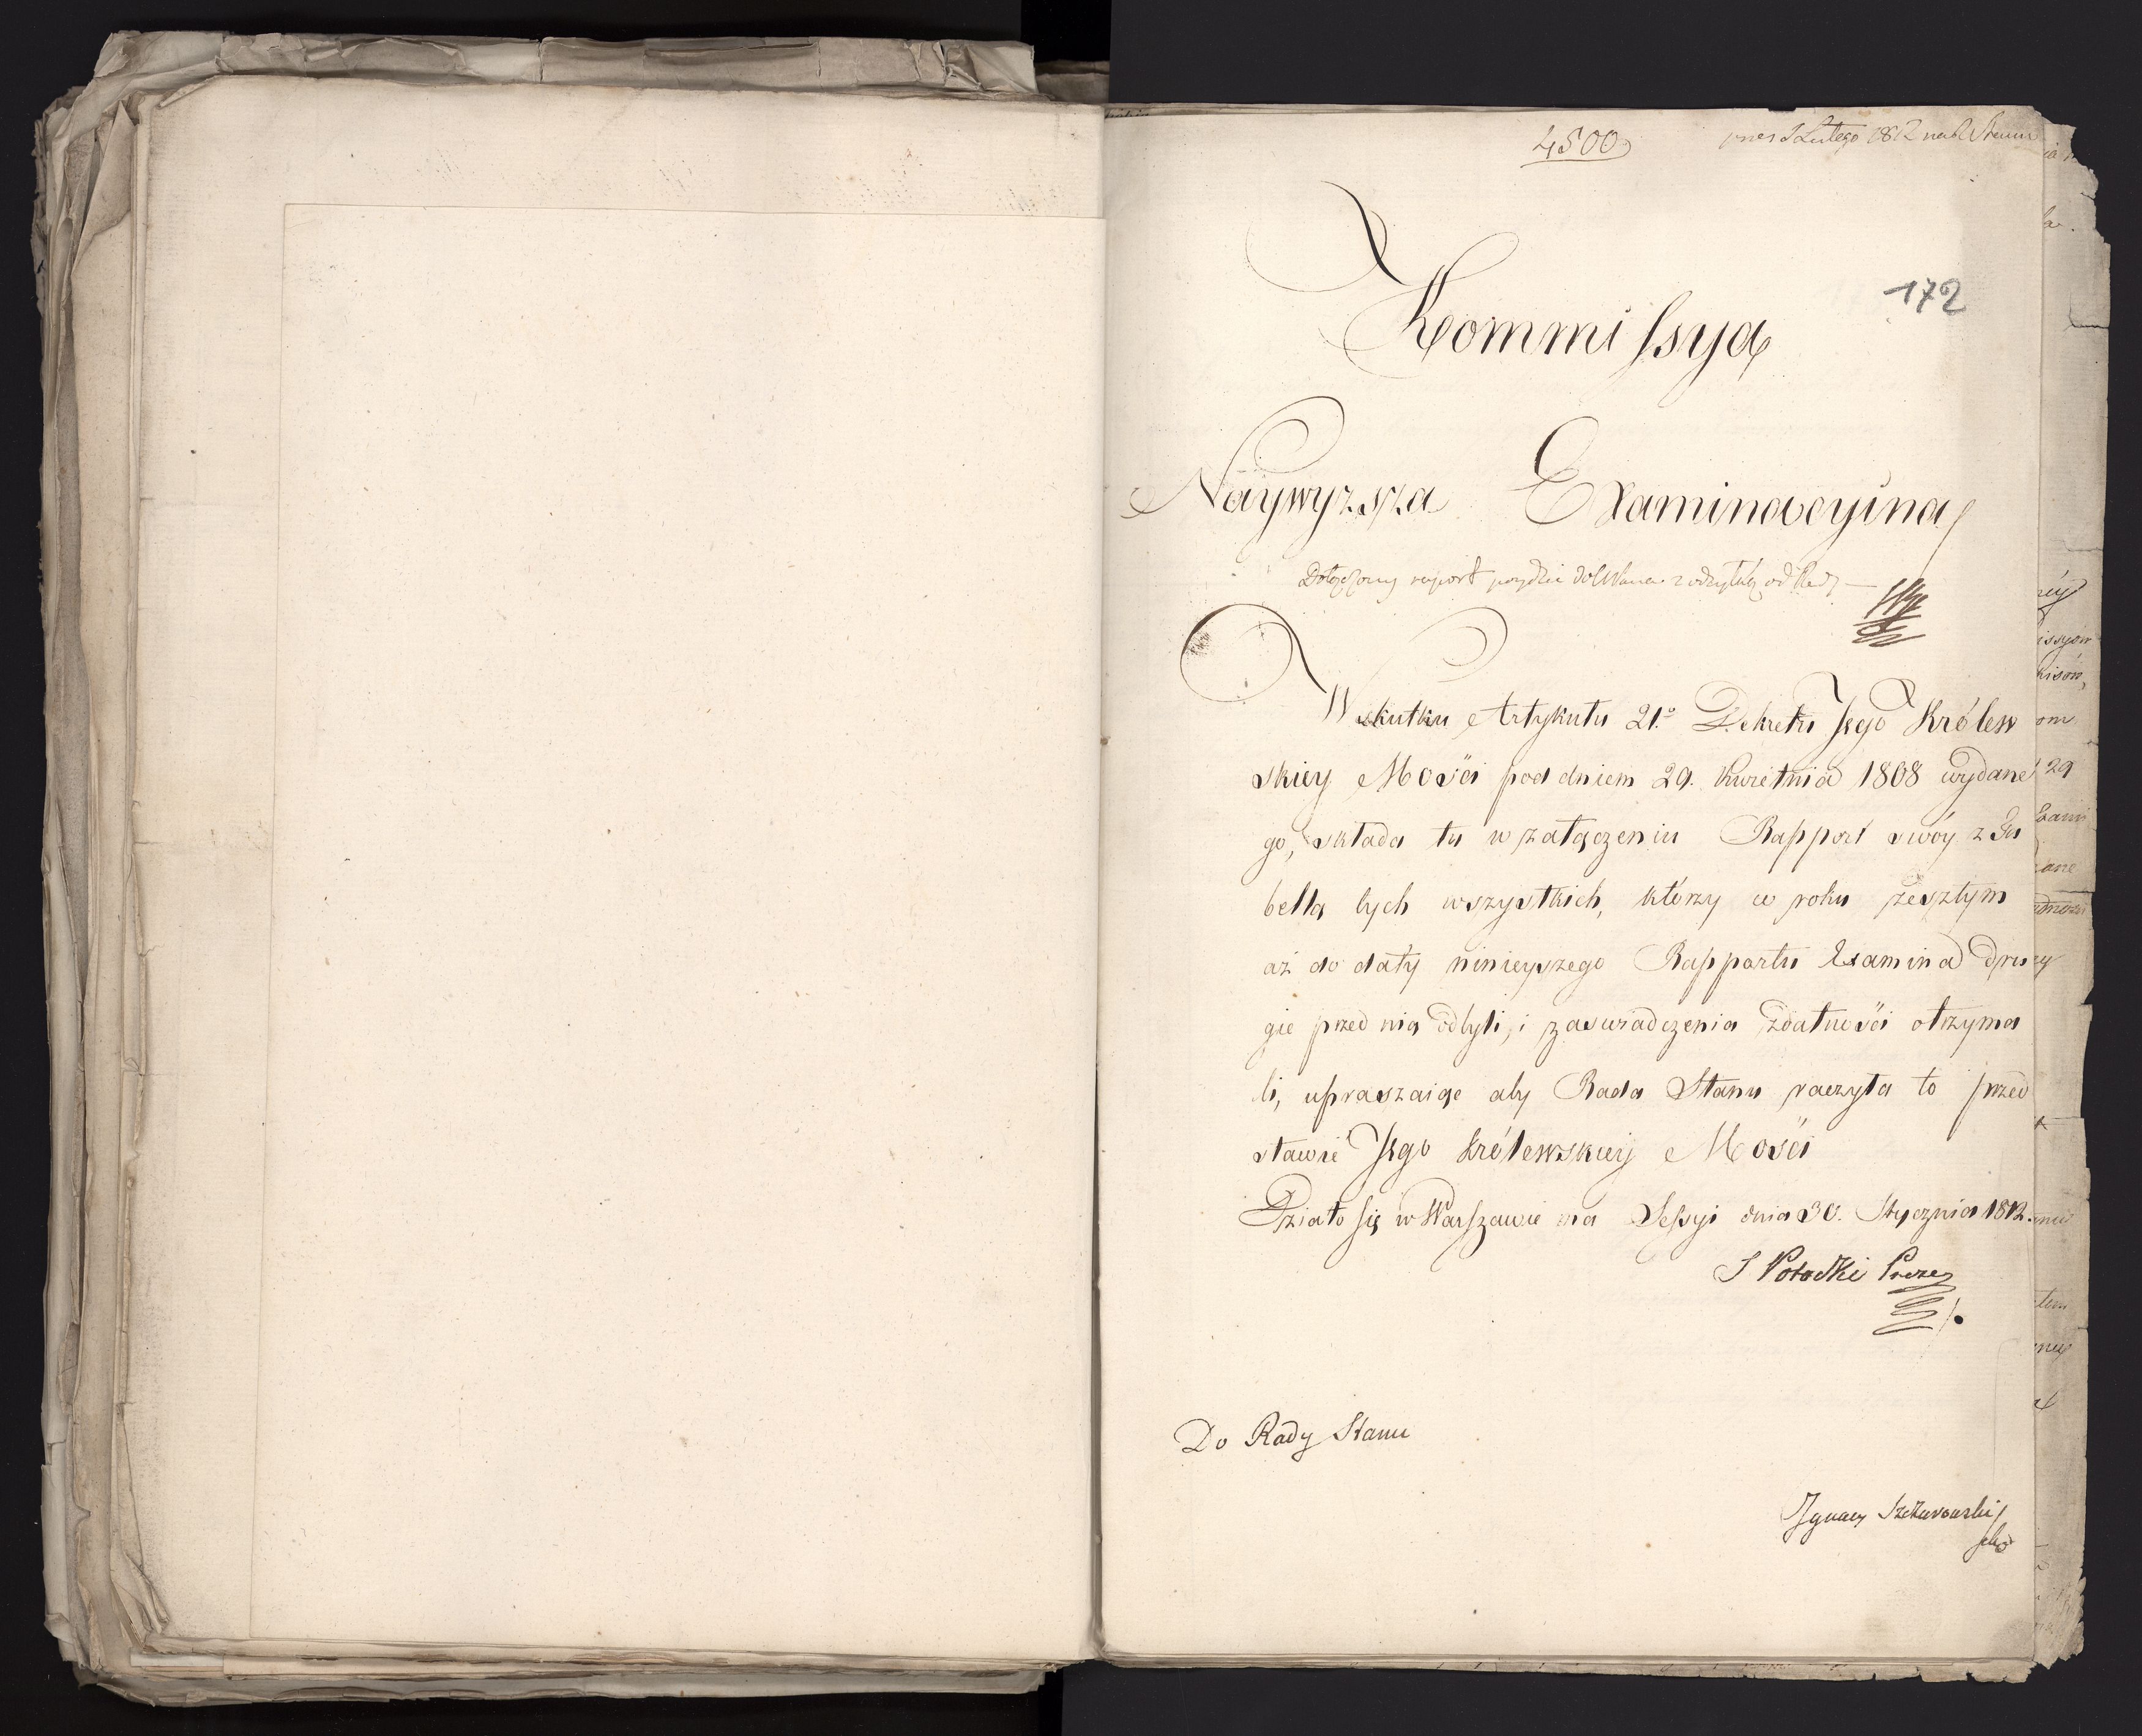 4500
Lutego 1812
172
Kommissya
Naywyzsza Examinacyina
Dołączony raport od Rady
W skutku Artykułu 21.º Dekretu Jego Królew
skiey Mości pod dniem 29. Kwietnia 1808 wydane
go, składa tu w załączeniu Rapport swóy z Ta
bellą tych wszystkich, którzy w roku zeszłym
aż do daty ninieyszego Rapportu Examina dru
gie przed nią odbyli, i zaswiadczenia zdatności otrzyma
li, upraszaiąc aby Rada Stanu raczyła to przed
stawić Jego Królewskiey Mości
Działo się w Warszawie na Sessyi dnia 30. Stycznia 1812.
S Potocki Prezes
Do Rady Stanu
Ignacy